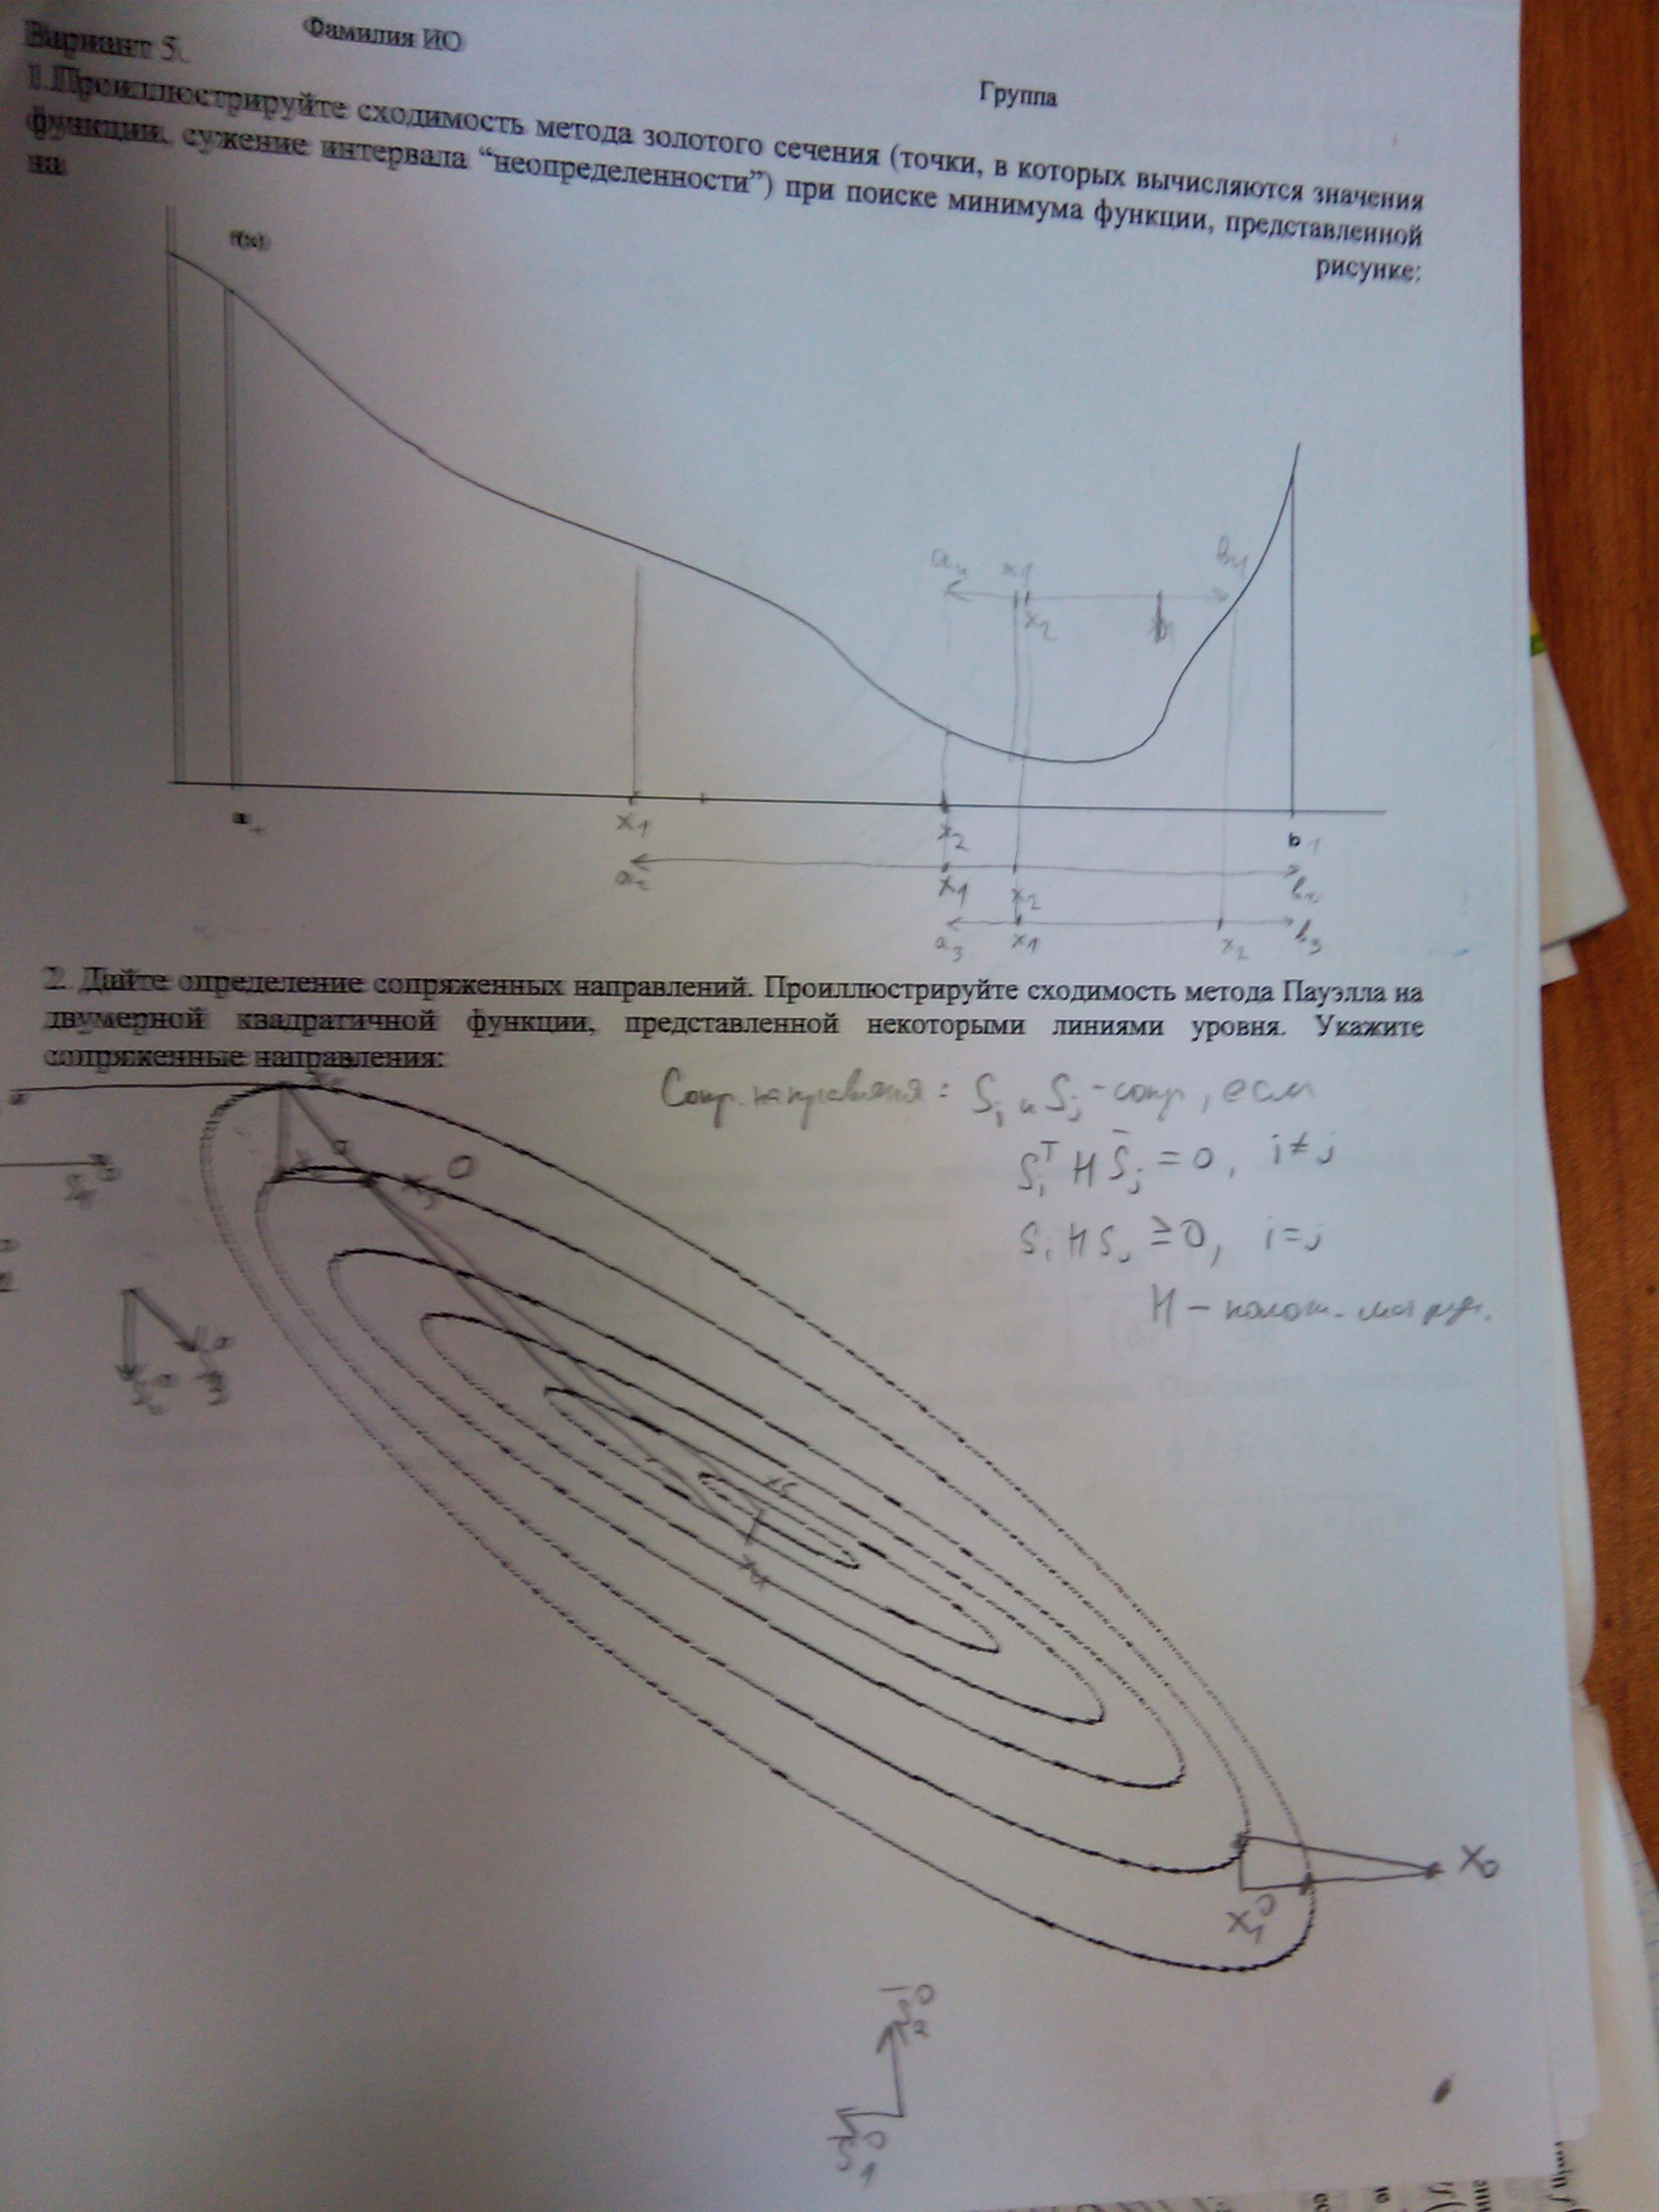 Вариант 5.
Фамилия ИО
Группа
1.Проиллюстрируйте сходимость метода золотого сечения (точки, в которых вычисляются значения
функции, сужение интервала “неопределенности”) при поиске минимума функции, представленной
на рисунке:
f(x)
a₄ x1 b₄
x₂
x₁ x₂ b₁
a₂ x₁ x₂ b₂
a₃ x₁ x₂ b₃
2. Дайте определение сопряженных направлений. Проиллюстрируйте сходимость метода Пауэлла на
двумерной квадратичной функции, представленной некоторыми линиями уровня. Укажите
сопряженные направления:
Сопр. направления: Sᵢ и Sⱼ - сопр, если
Sᵢᵀ H S̄ⱼ = 0, i ≠ j
Sᵢ H Sⱼ ≥ 0, i = j
H -
x₀
x₁⁰
S₂⁰
S₁⁰